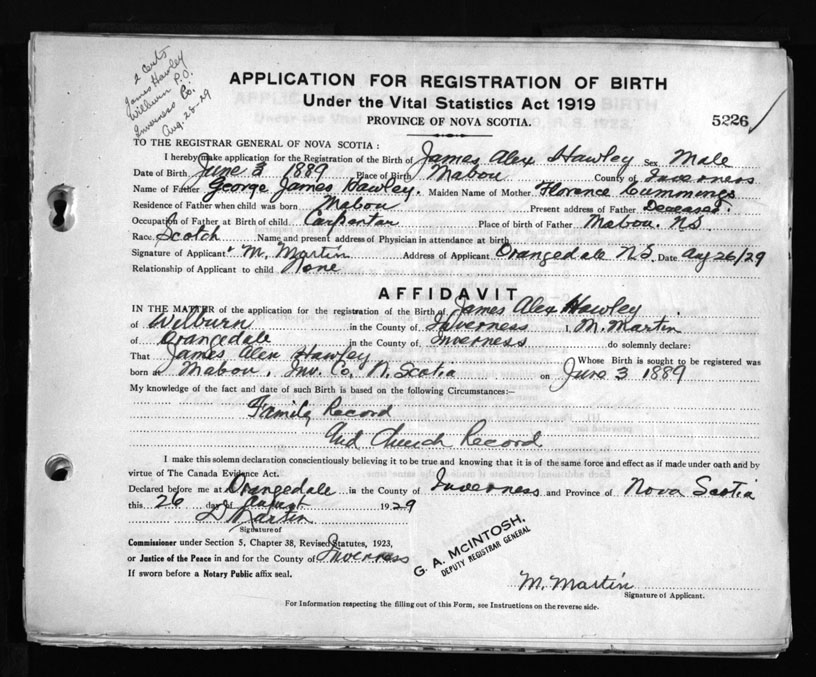 2 Cents
James Hawley
Wilburn P.O.
Inverness Co.
Aug. 28-29
APPLICATION FOR REGISTRATION OF BIRTH
Under the Vital Statistics Act 1919
PROVINCE OF NOVA SCOTIA.
5226
TO THE REGISTRAR GENERAL OF NOVA SCOTIA :
I hereby make application for the Registration of the Birth of James Alex Hawley Sex Male
Date of Birth June 3 1889 Place of Birth Mabou County of Inverness
Name of Father George James Hawley. Maiden Name of Mother Florence Cummings
Residence of Father when child was born Mabou Present address of Father Deceased.
Occupation of Father at Birth of child Carpentar Place of birth of Father Mabou. N.S.
Race Scotch Name and present address of Physician in attendance at birth
Signature of Applicant M. Martin Address of Applicant Orangedale N.S. Date Aug 26/29
Relationship of Applicant to child None
AFFIDAVIT
IN THE MATTER of the application for the registration of the Birth of James Alex Hawley
of Wilburn in the County of Inverness I, M. Martin
of Orangedale in the County of Inverness do solemnly declare:
That James Alex Hawley Whose Birth is sought to be registered was
born at Mabou, Inv. Co. N. Scotia on June 3 1889
My knowledge of the fact and date of such Birth is based on the following Circumstances:—
Family Record
and Church Record
I make this solemn declaration conscientiously believing it to be true and knowing that it is of the same force and effect as if made under oath and by
virtue of The Canada Evidence Act.
Declared before me at Orangedale in the County of Inverness and Province of Nova Scotia
this 26 day of August 1929
D Martin
Signature of
Commissioner under Section 5, Chapter 38, Revised Statutes, 1923,
or Justice of the Peace in and for the County of Inverness
If sworn before a Notary Public affix seal.
G. A. McINTOSH,
DEPUTY REGISTRAR GENERAL
M. Martin
Signature of Applicant.
For Information respecting the filling out of this Form, see Instructions on the reverse side.